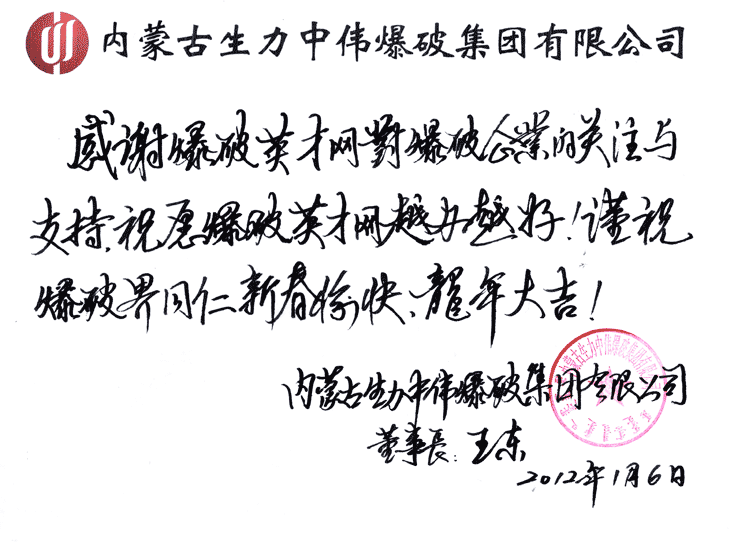 内蒙古生力中伟爆破集团有限公司
感谢爆破英才网對爆破企業的关注与
支持,祝愿爆破英才网越办越好!谨祝
爆破界同仁新春愉快、龍年大吉!
内蒙古生力中伟爆破集团有限公司
董事長:王东
2012年1月6日